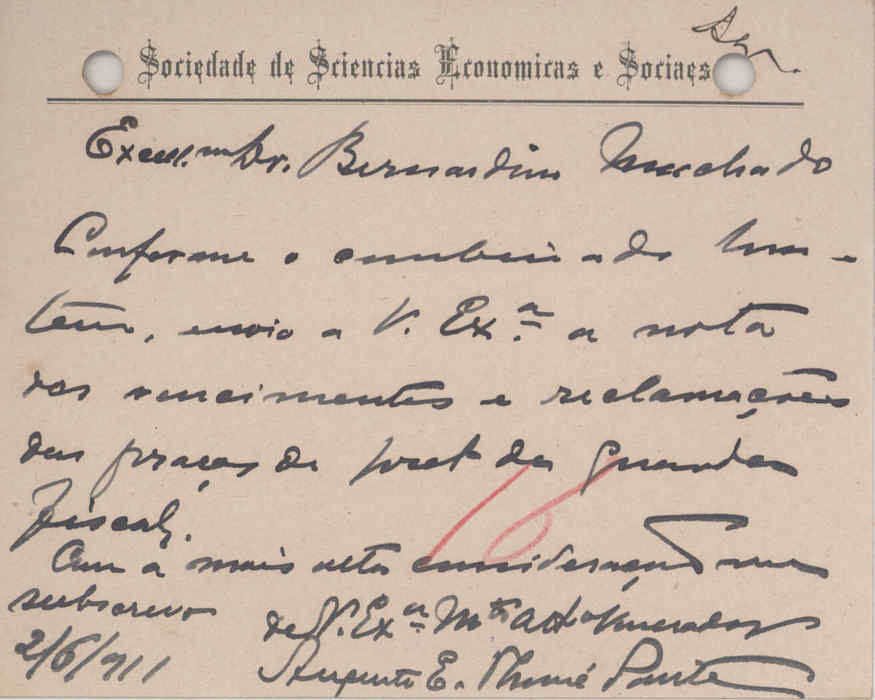 Sociedade de Sciencias Economicas e Sociaes
Excell.mo Dr. Bernardino Machado
Conforme o combinado hon-
tem, envio a V. Ex.ª a nota
dos vencimentos e reclamações
das praças de pret da guarda
fiscal.
Com a mais alta consideração me
subscrevo
de V. Ex.ª M.to Att.o Venerador
2/6/911
Augusto E.
16